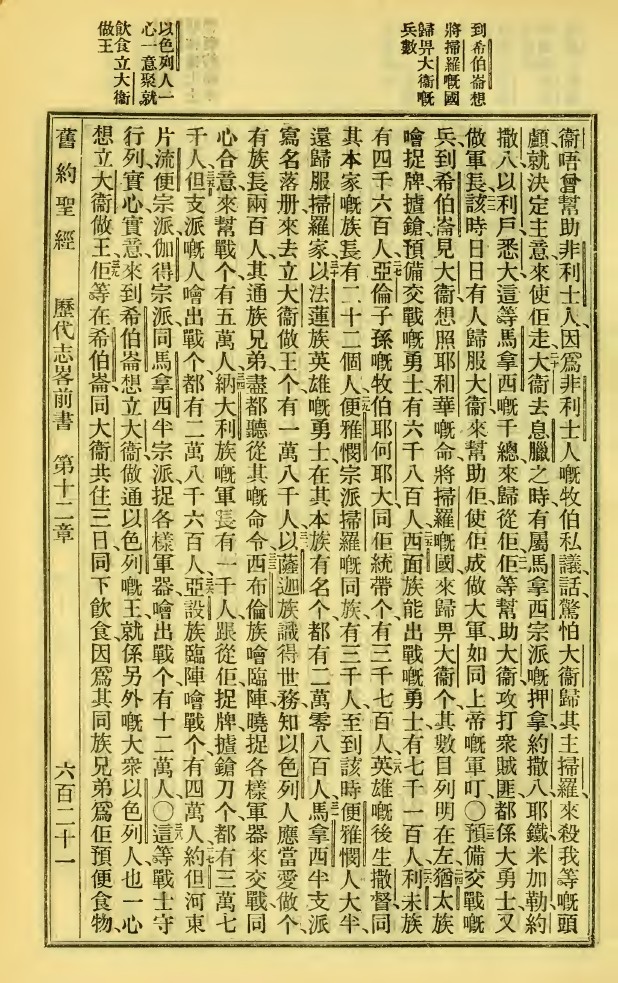 到希伯崙想
將掃羅嘅國
歸畀大衞嘅
兵數
以色列人一
心一意聚就
飲食立大衞
做王
衞唔曾幫助非利士人因爲非利士人嘅牧伯私議話驚怕大衞歸其主掃羅來殺我等嘅頭
顱就決定主意來使佢走大衞去息臘之時有屬馬拿西宗派嘅押拿約撒八耶鐵米加勒約
撒八以利戶悉大這等馬拿西嘅千總來歸從佢佢等幫助大衞攻打衆賊匪都係大勇士又
做軍長該時日日有人歸服大衞來幫助佢使佢成做大軍如同上帝嘅軍叮〇預備交戰嘅
兵到希伯崙見大衞想照耶和華嘅命將掃羅嘅國來歸畀大衞个其數目列明在左猶太族
噲捉牌擔鎗預備交戰嘅勇士有六千八百人西面族能出戰嘅勇士有七千一百人利未族
有四千六百人亞倫子孫嘅牧伯耶何耶大同佢統帶个有三千七百人英雄嘅後生撒督同
其本家嘅族長有二十二個人便雅憫宗派掃羅嘅同族有三千人至到該時便雅憫人大半
還歸服掃羅家以法蓮族英雄嘅勇士在其本族有名个都有二萬零八百人馬拿西半支派
寫名落册來去立大衞做王个有一萬八千人以薩迦族識得世務知以色列人應當愛做个
有族長兩百人其通族兄弟盡都聽從其嘅命令西布倫族噲臨陣曉捉各樣軍器來交戰同
心合意來幫戰个有五萬人納大利族嘅軍長有一千人跟從佢捉牌擔鎗刀个都有三萬七
千人但支派嘅人噲出戰个都有二萬八千六百人亞設族臨陣噲戰个有四萬人約但河東
片流便宗派伽得宗派同馬拿西半宗派捉各樣軍器噲出戰个有十二萬人〇這等戰士守
行列實心實意來到希伯崙想立大衞做通以色列嘅王就係另外嘅大衆以色列人也一心
想立大衞做王佢等在希伯崙同大衞共住三日同下飲食因爲其同族兄弟爲佢預便食物
舊約聖經 歷代志畧前書 第十二章 六百二十一